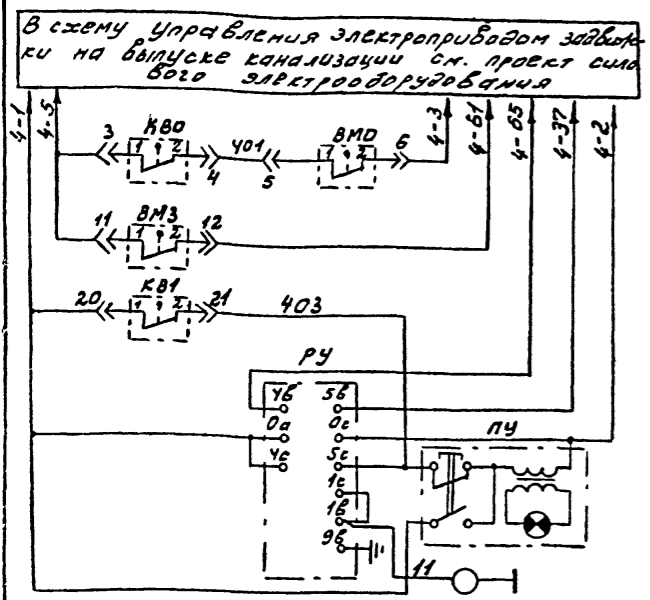 В схему управления электроприводом задвиж-
ки на выпуске канализации см. проект сило
вого электрооборудования
4-1
4-5
4-3
4-61
4-65
4-37
4-2
3 КВО 1 2 4 401 5 ВМО 1 2 6
11 ВМЗ 1 2 12
20 КВ1 1 2 21 403
РУ
4в 5в
0а 0с
ПУ
4с 5с
1с
1в
9в
11